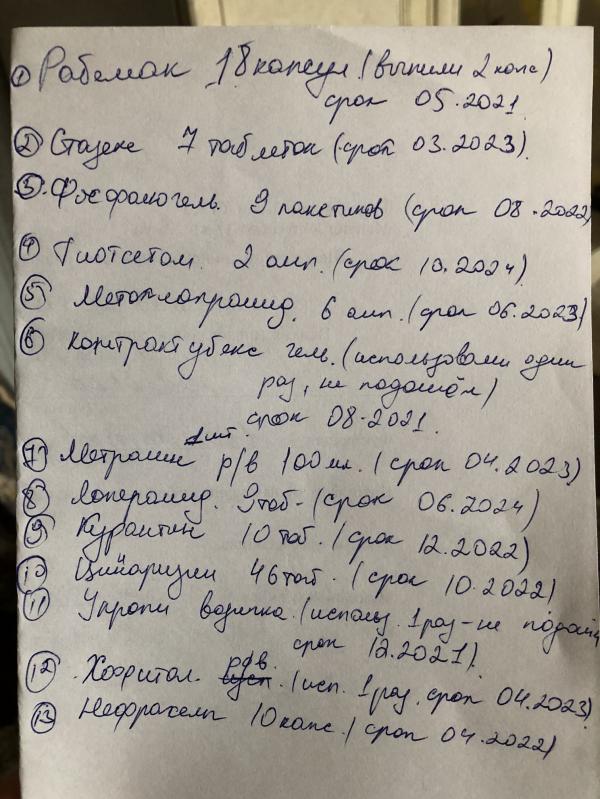 ① Рабемак 18 капсул (выпили 2 капс)
срок 05.2021
② Стазекс 7 таблеток (срок 03.2023).
③. Фосфалюгель. 9 пакетиков (срок 08.2022)
④ Тиотсетам. 2 амп. (срок 10.2024)
⑤ Метоклопрамид. 6 амп. (срок 06.2023)
⑥ контрактубекс гель. (использовали один
раз, не подошёл)
срок 08-2021.
1шт.
⑦ Метрамин р/в 100мл. (срок 04.2023)
⑧ Лоперамид. 9таб- (срок 06.2024)
⑨ Курантин 10 таб. (срок 12.2022)
⑩ Циннаризин 46таб. (срок 10.2022)
⑪ Укропн водичка. (использ. 1раз-не подош
срок 12.2021).
⑫ . Хофитол. р/в. (исп. 1раз. срок 04.2023)
⑬ Нефрахелп 10капс. (срок 04.2022)